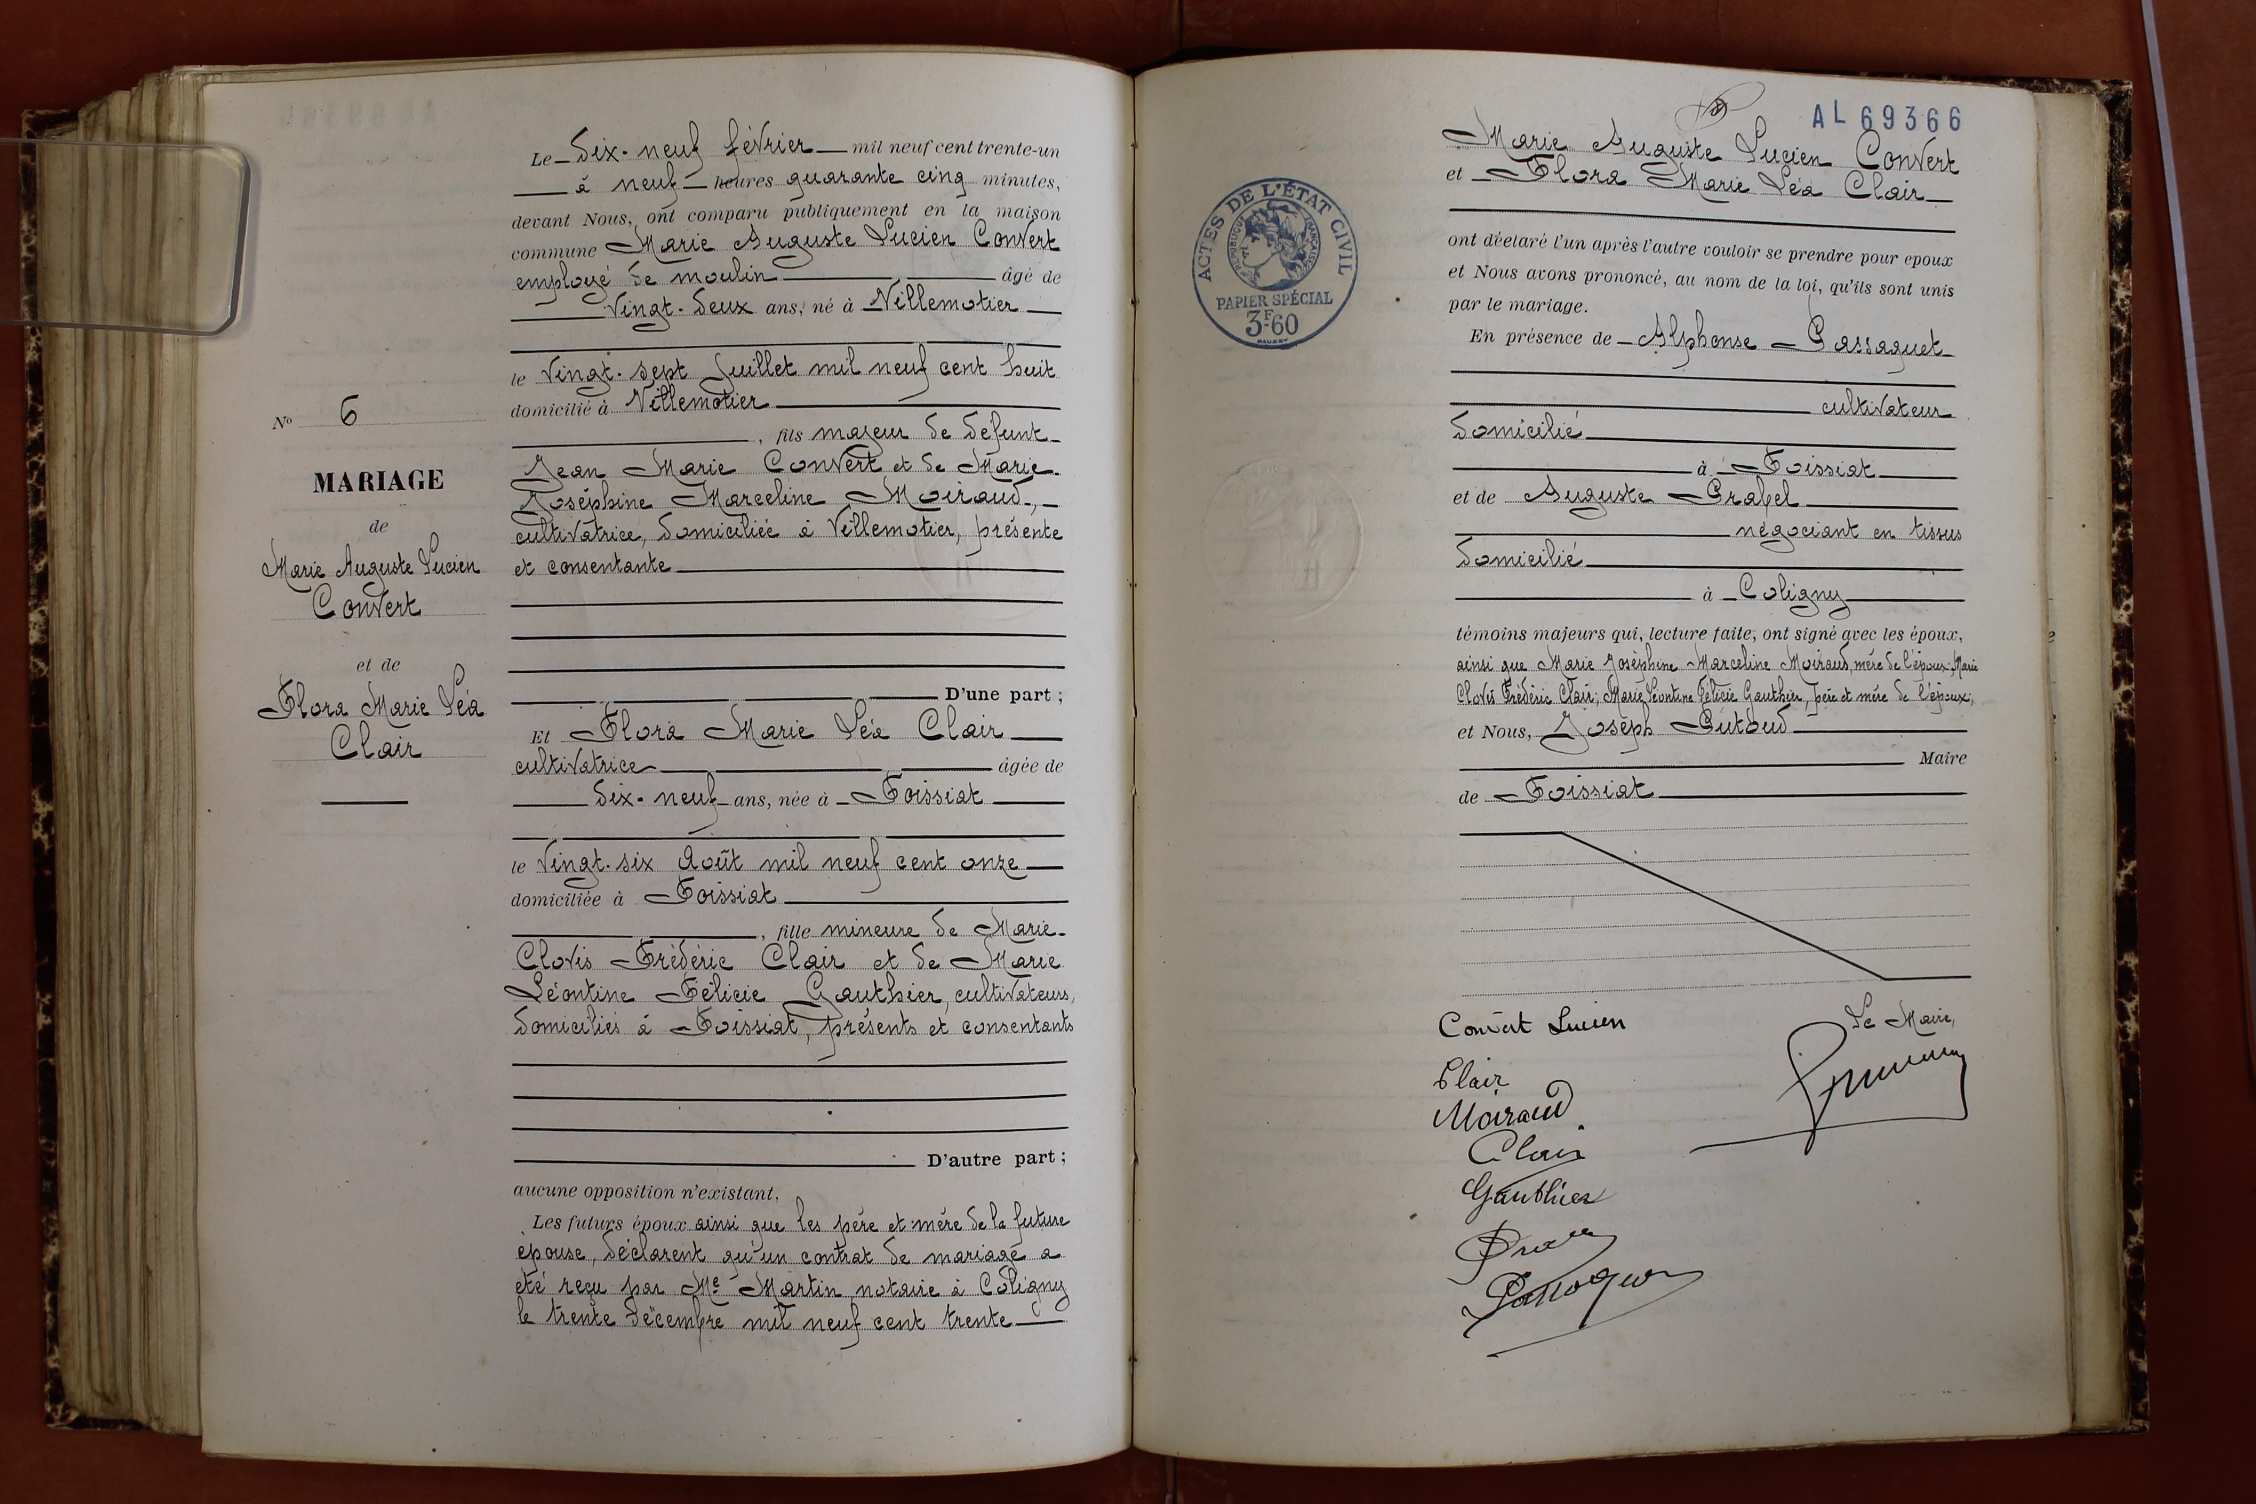 Le Dix-neuf février mil neuf cent trente-un
à neuf heures quarante cinq minutes,
devant Nous, ont comparu publiquement en la maison
commune Marie Auguste Lucien Convert
employé de moulin âgé de
vingt-deux ans, né à Villemotier
le vingt-sept Juillet mil neuf cent huit
domicilié à Villemotier
, fils majeur de défunt
Jean Marie Convert et de Marie-
Joséphine Marceline Moiraud,
cultivatrice, domiciliée à Villemotier, présente
et consentante
D'une part ;
Et Flora Marie Léa Clair
cultivatrice âgée de
dix-neuf ans, née à Foissiat
le vingt-six Août mil neuf cent onze
domiciliée à Foissiat
, fille mineure de Marie-
Clovis Frédéric Clair et de Marie
Léontine Félicie Gauthier, cultivateurs,
domiciliés à Foissiat, présents et consentants
D'autre part ;
aucune opposition n'existant,
Les futurs époux ainsi que les père et mère de la future
épouse, déclarent qu'un contrat de mariage a
été reçu par Me Martin notaire à Coligny
le trente Décembre mil neuf cent trente
No 6
MARIAGE
de
Marie Auguste Lucien
Convert
et de
Flora Marie Léa
Clair
AL 69366
Marie Auguste Lucien Convert
et Flora Marie Léa Clair
ont déclaré l'un après l'autre vouloir se prendre pour epoux
et Nous avons prononcé, au nom de la loi, qu'ils sont unis
par le mariage.
En présence de Alphonse Passaquet
cultivateur
domicilié
à Foissiat
et de Auguste Prabel
négociant en tissus
domicilié
à Coligny
témoins majeurs qui, lecture faite, ont signé avec les époux,
ainsi que Marie Joséphine Marceline Moiraud, mère de l'époux, Marie
Clovis Frédéric Clair, Marie Léontine Félicie Gauthier, père et mère de l'épouse,
et Nous, Joseph Putoud
Maire
de Foissiat
ACTES DE L'ÉTAT CIVIL
RÉPUBLIQUE FRANÇAISE
PAPIER SPÉCIAL
3F60
Convert Lucien
Le Maire,
Clair
Moiraud
Clair
Gauthier